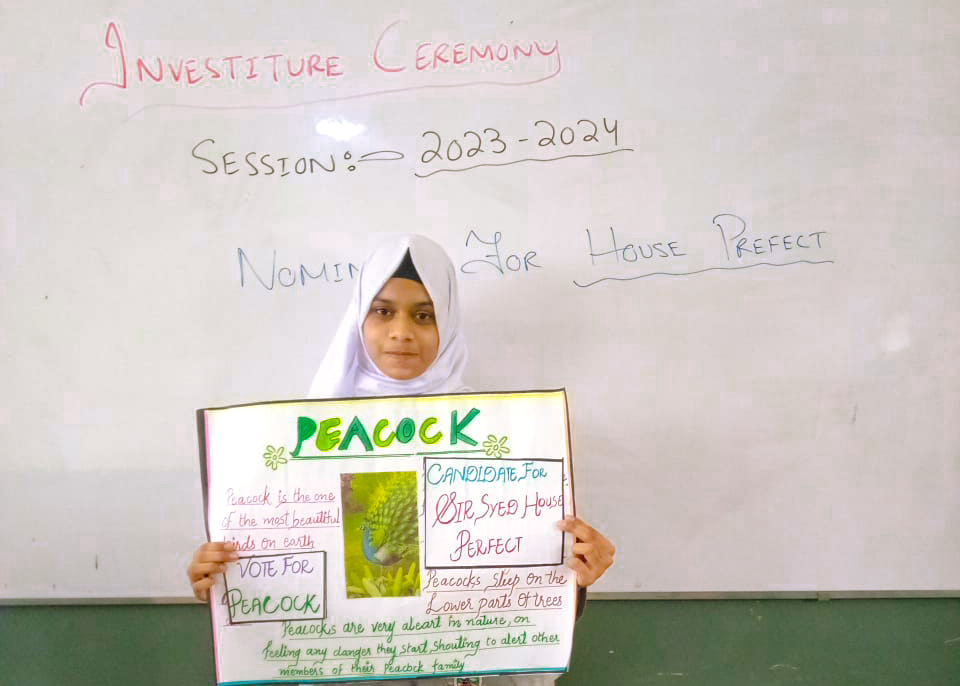 INVESTITURE CEREMONY
SESSION:- 2023-2024
NOMIN FOR HOUSE PREFECT
PEACOCK
Peacock is the one
of the most beautiful
birds on earth
VOTE FOR
PEACOCK
CANDIDATE FOR
SIR SYED HOUSE
PERFECT
Peacocks sleep on the
Lower parts of trees
Peacocks are very aleart in nature, on
feeling any danger they start shouting to alert other
members of their peacock family